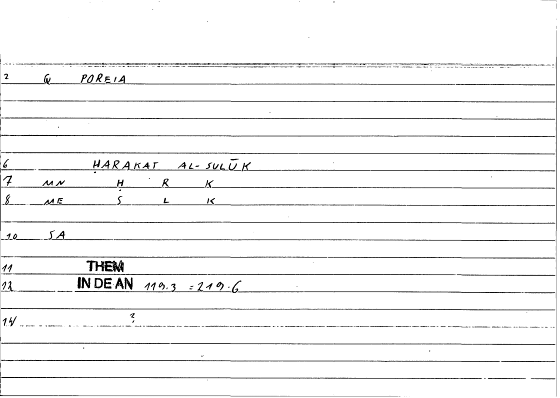 2 G POREIA
6 ḤARAKAT AL-SULŪK
7 MN Ḥ R K
8 ME S L K
10 SA
11 THEM
12 IN DE AN 119.3 = 219.6
14 ?